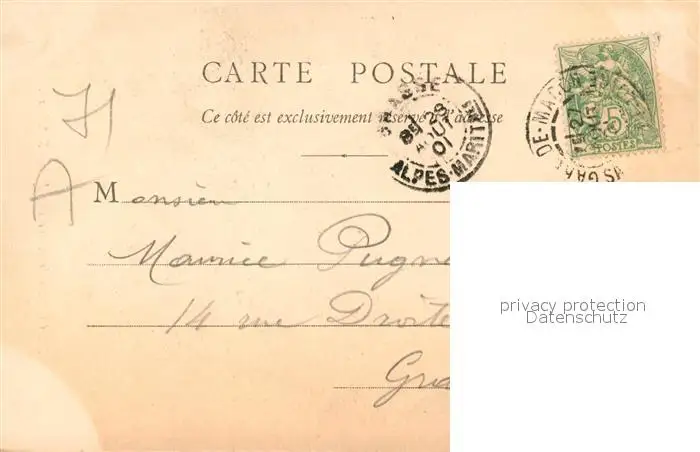 CARTE POSTALE
Ce côté est exclusivement réservé à l'adresse
GRASSE
28
AOUT
01
ALPES-MARITIM
5
POSTES
Monsieur
Maurice Pugne
14 rue Droite
Gra
privacy protection
Datenschutz